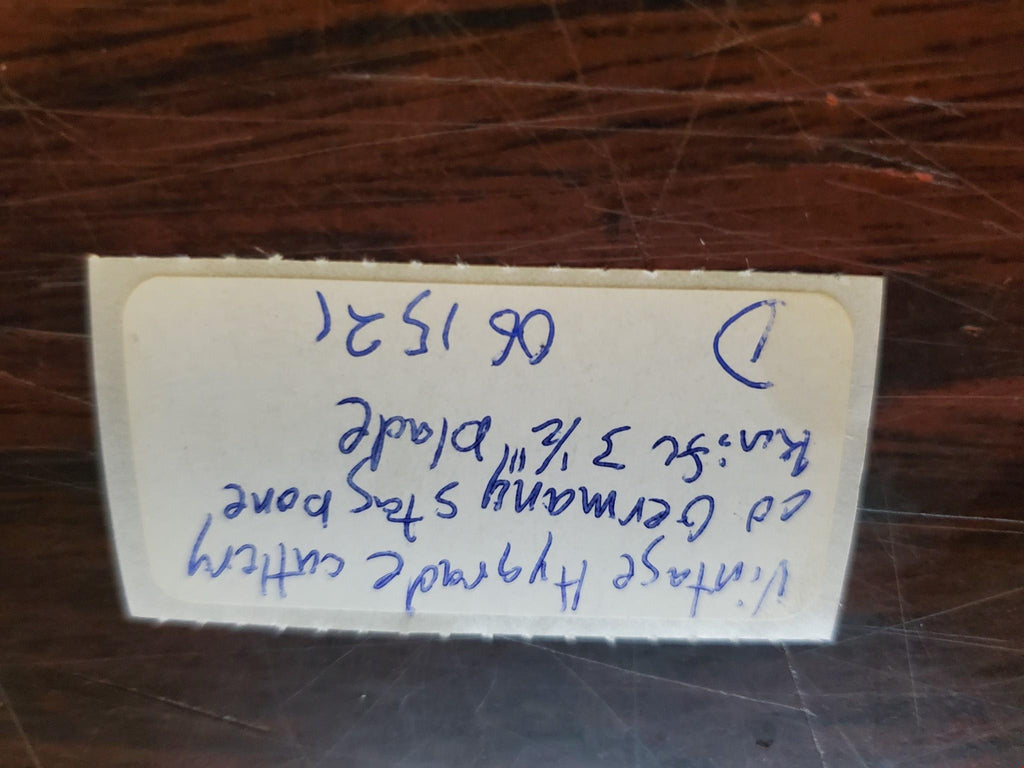 Vintage Hygrade cuttery
co Germany stag bone
knife 3 1/2" blade
D 061521